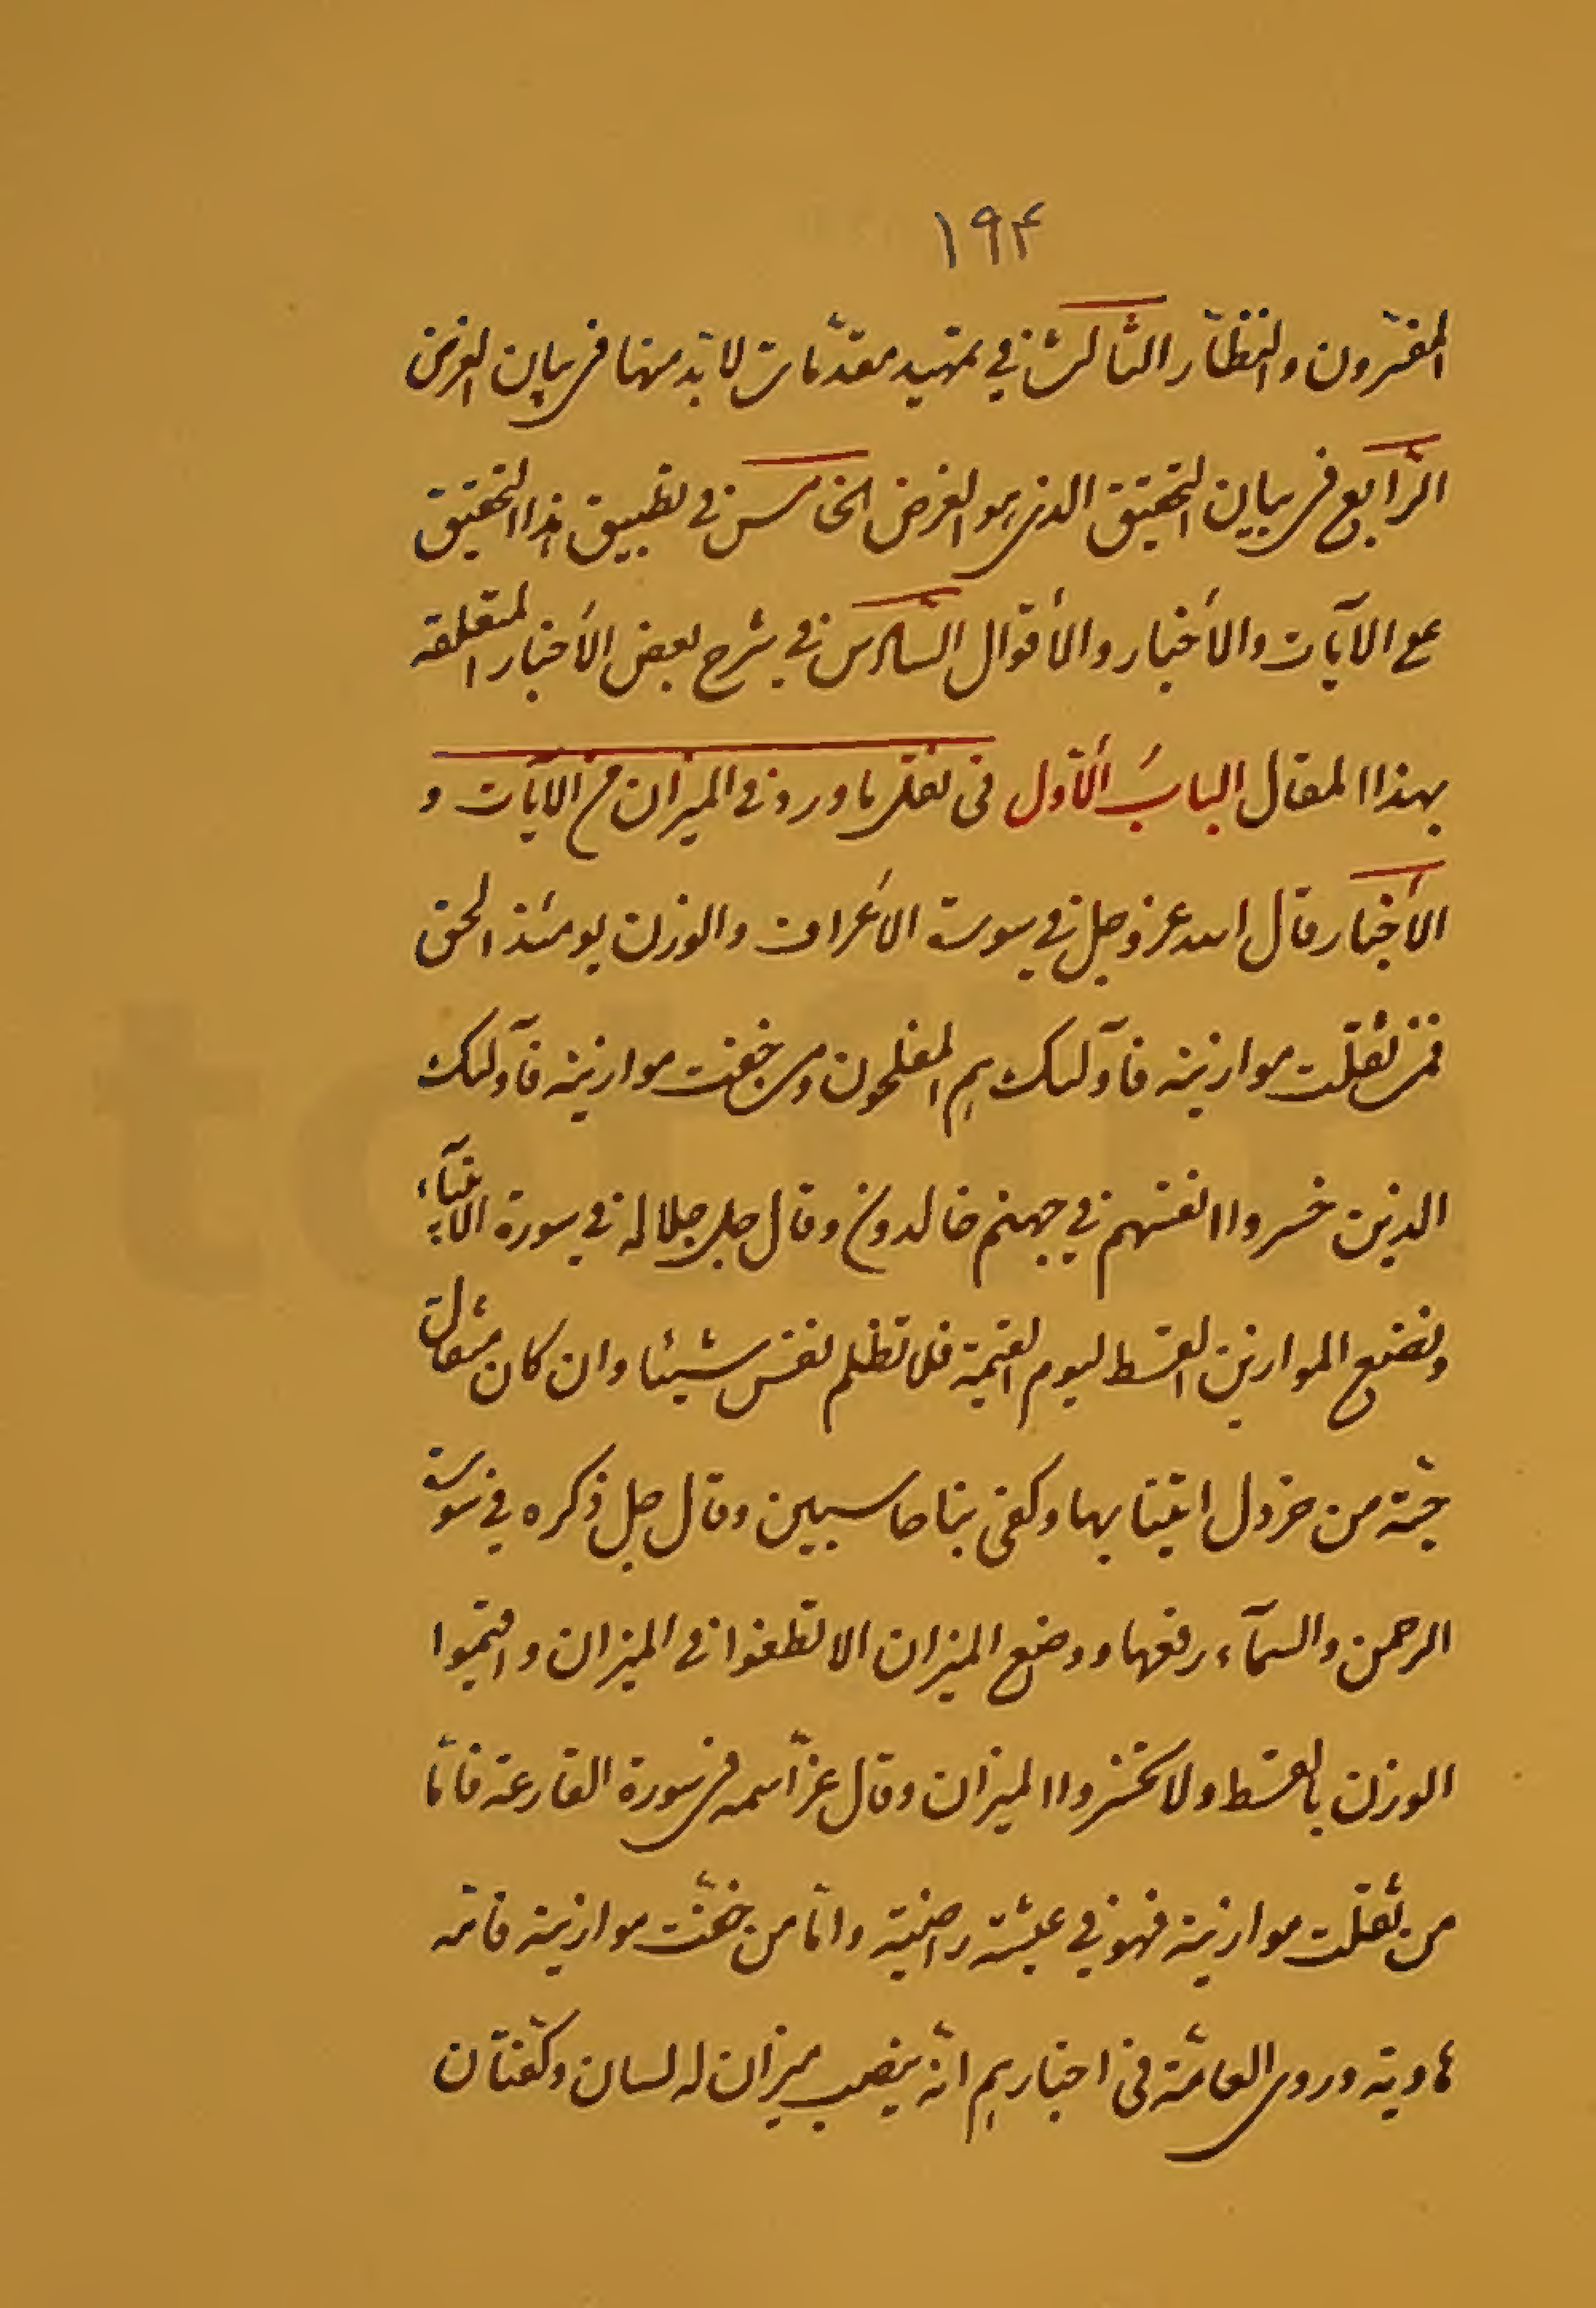 ۱۹۴
المفسّرون والنظّار الثالث في تمهيد مقدّمات لا بدّ منها في بيان الغرض
الرّابع في بيان التحقيق الذي هو الغرض الخامس في تطبيق هذا التحقيق
مع الآيات والأخبار والأقوال السّادس في شرح بعض الأخبار المتعلقه
بهذا المقال البابُ الأوّل في نقل ما ورد في الميزان من الآيات و
الأخبار قال الله عز وجل في سورة الأعراف والوزن يومئذ الحق
فمن ثقلت موازينه فآولئك هم المفلحون ومن خفت موازينه فآولئك
الذين خسروا انفسهم في جهنم خالدون وقال جل جلاله في سورة الأنبيآء
ونضع الموازين القسط ليوم القيمة فلا تظلم نفس شيئا وان كان مثقال
حبّة من خردل اتينا بها وكفى بنا حاسبين وقال جل ذكره في سورة
الرحمن والسمآء رفعها ووضع الميزان الا تطغوا في الميزان واقيموا
الوزن بالقسط ولا تخسروا الميزان وقال عزّ اسمه في سورة القارعة فامّا
من ثقلت موازينه فهو في عيشة راضية وامّا من خفّت موازينه فامّه
هاوية وروى العامّة في اخبارهم انّه ينصب ميزان له لسان وكفّتان
totfim